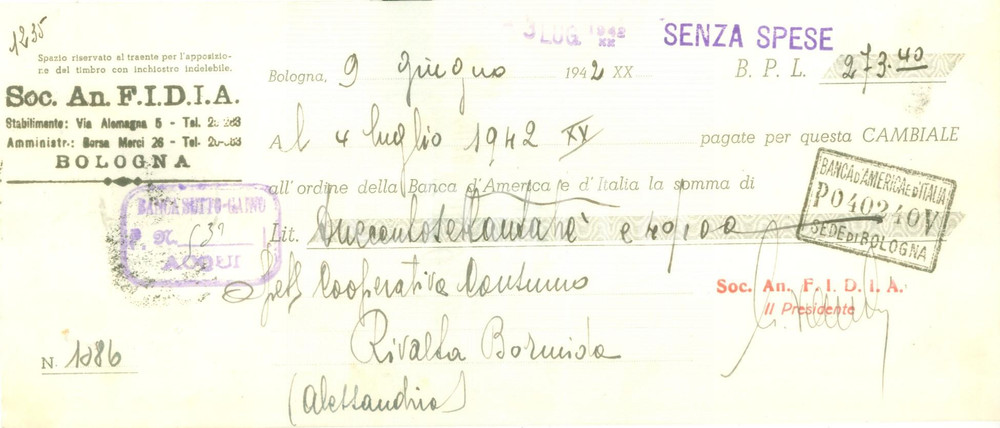 1235
3 LUG 1942 XX
SENZA SPESE
Spazio riservato al traente per l'apposizio-
ne del timbro con inchiostro indelebile.
Soc. An. F.I.D.I.A.
Stabilimente: Via Alemagna 5 - Tel.
Amministr.: Borsa Merci 26 - Tel.
BOLOGNA
Bologna, 9 giugno 1942 XX
B. P. L. 273.40
Al 4 luglio 1942 XX pagate per questa CAMBIALE
all'ordine della Banca d'America e d'Italia la somma di
Lit. e 40/100
BANCA D'AMERICA E D'ITALIA
P040240V
SEDE DI BOLOGNA
ACQUI
Spett Cooperativa Consumo
Rivalta Bormida
(Alessandria)
Soc. An. F. I. D. I. A.
Il Presidente
N. 1086